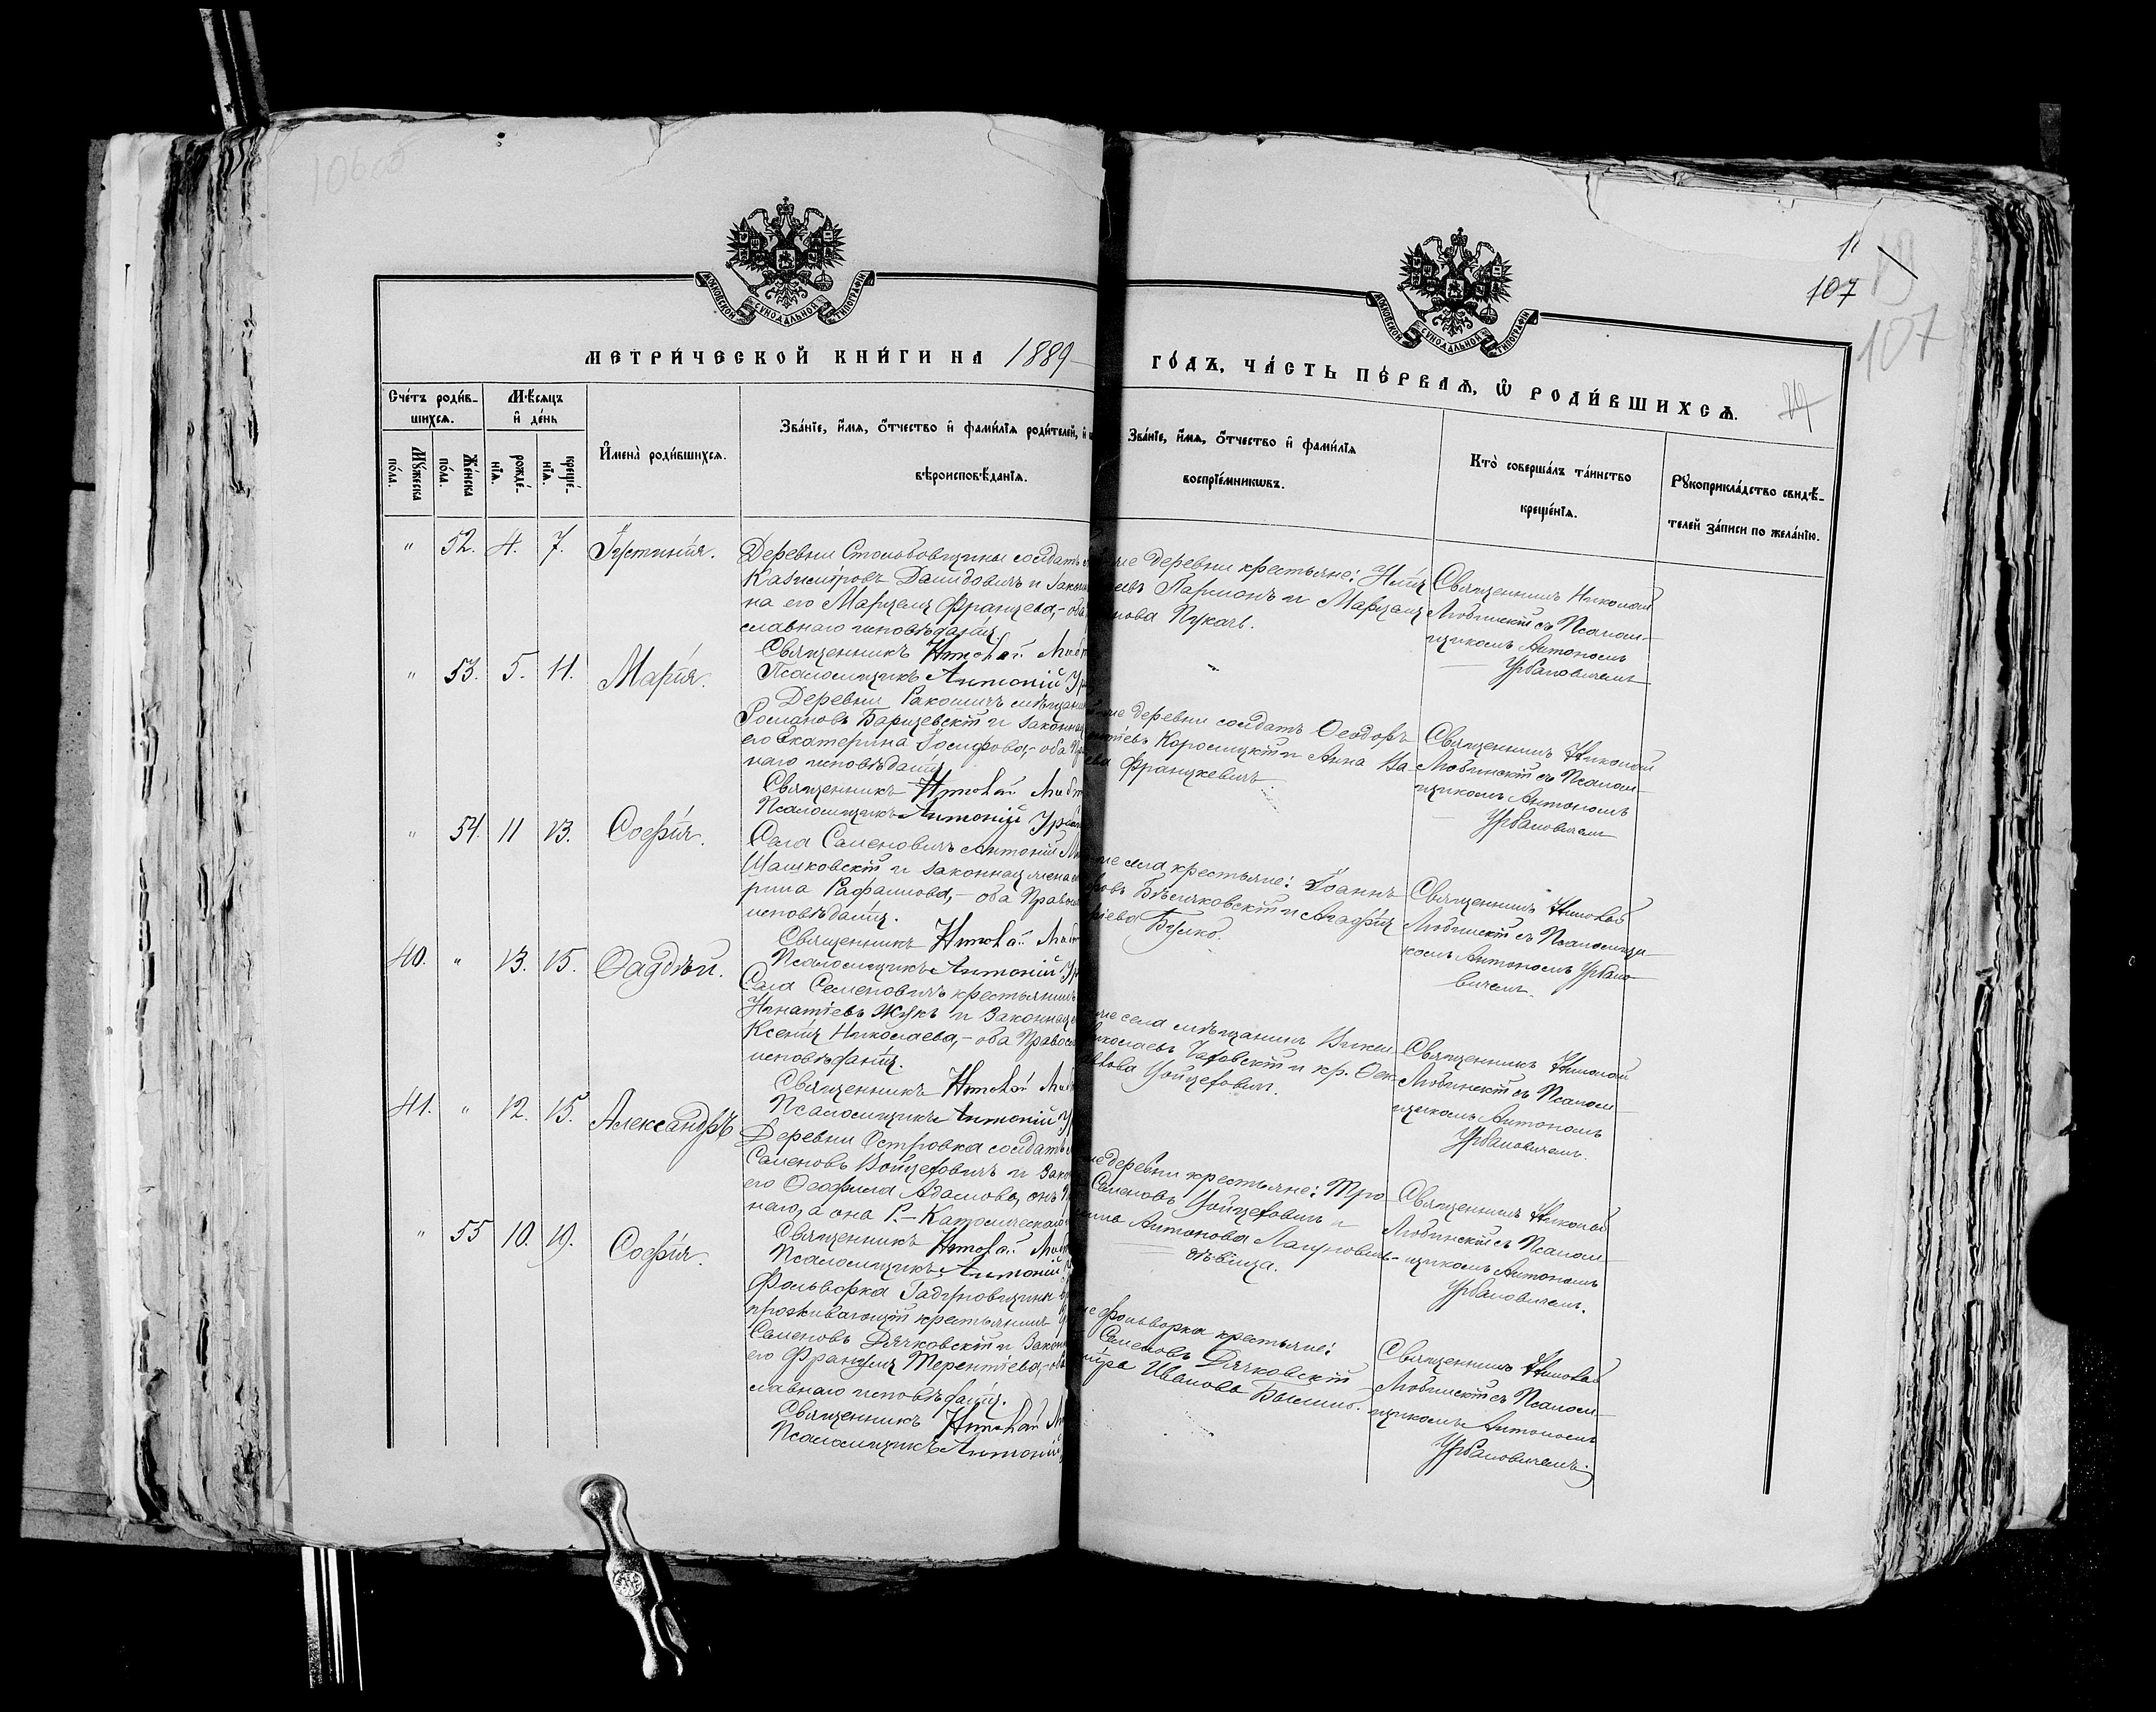 106об
11
19
107
107
МОСКОВСКОЙ СѴНОДАЛЬНОЙ ТИПОГРАФІИ
МОСКОВСКОЙ СѴНОДАЛЬНОЙ ТИПОГРАФІИ
МЕТРИ́ЧЕСКОЙ КНИ́ГИ НА 1889
ГО́ДЪ, ЧА́СТЬ ПЕ́РВАѦ, Ѽ РОДИ́ВШИХСѦ.
Сче́тъ роди́в-
шихсѧ.
Мѣ́сѧцъ
и҆ де́нь
Мꙋ́жеска
по́ла.
Же́нска
по́ла.
рожде́-
нїѧ.
креще́-
нїѧ.
И҆мена̀ роди́вшихсѧ.
Зва́нїе, и҆́мѧ, ѻ҆́тчество и҆ фами́лїѧ роди́телей, и҆
вѣроисповѣ́данїѧ.
Зва́нїе, и҆́мѧ, ѻ҆́тчество и҆ фами́лїѧ
воспрїе́мникѡвъ.
Кто̀ соверша́лъ та́инство
креще́нїѧ.
Рꙋкоприкла́дство свидѣ́-
телей за́писи по жела́нїю.
" 52. 4. 7. Іустинія.
Деревни Столбовщины солдатъ
Казиміровъ Данидовичъ и закон
на его Марцеля Францева,- оба
славнаго исповѣданія.
Священникъ Николай Люб
Псаломщикъ Антоній Ур
деревни крестьяне:
Пармонъ и Марцеля
нова Пукачъ.
Священникъ Николай
Любинскій съ Псалом-
щикомъ Антономъ
Урбановичемъ
" 53. 5. 11. Марія.
Деревни Ракошичъ мѣщанин
Романовъ Барщевскій и законная
его Екатерина Іосифова,- оба Пра
наго исповѣданія
Священникъ Николай Люб
Псаломщикъ Антоній Урб
деревни солдатъ Ѳеодоръ
Коросицкій и Анна Ва-
ева Францкевичъ
Священникъ Николай
Любинскій съ Псалом-
щикомъ Антономъ
Урбановичемъ
" 54. 11 13. Софія.
Села Семеновичъ Антоній
Машковскій и законная жена е
рина Рафаилова,- оба Правос
исповѣданія.
Священникъ Николай Люб
Псаломщикъ Антоній Ур
села крестьяне: Іоаннъ
Бѣсячковскій и Агафія
ніева Булко.
Священникъ Николай
Любинскій съ Псаломщи-
комъ Антономъ Урбано-
вичемъ.
40. " 13. 15. Ѳаддѣй.
Села Семеновичъ крестьянинъ
Игнатіевъ Жукъ и Законная
Ксенія Николаева,- оба Правос
исповѣданія.
Священникъ Николай Люб
Псаломщикъ Антоній У
села мѣщанинъ Викен
Николаевъ Чаховскій и кр. Ѳек
Войцеховичъ.
Священникъ Николай
Любинскій съ Псалом-
щикомъ Антономъ
Урбановичемъ.
41. " 12. 15. Александръ
Деревни Островка солдатъ
Семеновъ Войцеховичъ и Зако
его Ѳеофила Адамова, онъ П
наго, а она Р.-Католическаго
Священникъ Николай Люб
Псаломщикъ Антоній
деревни крестьяне: Тро
Семеновъ Войцеховичъ и
Антонова Лагуновичъ-
дѣвица.
Священникъ Николай
Любинскій съ Псалом-
щикомъ Антономъ
Урбановичемъ.
" 55 10. 19. Софія.
Фольварка Гадуновщины
проживающій крестьянинъ
Семеновъ Дячковскій и Закон
его Франця Терентіева,- оба
славнаго исповѣданія.
Священникъ Николай Л
Псаломщикъ Антоній
фольварка крестьяне:
Семеновъ Дячковскій
Иванова Былино.
Священникъ Николай
Любинскій съ Псалом-
щикомъ Антономъ
Урбановичемъ.